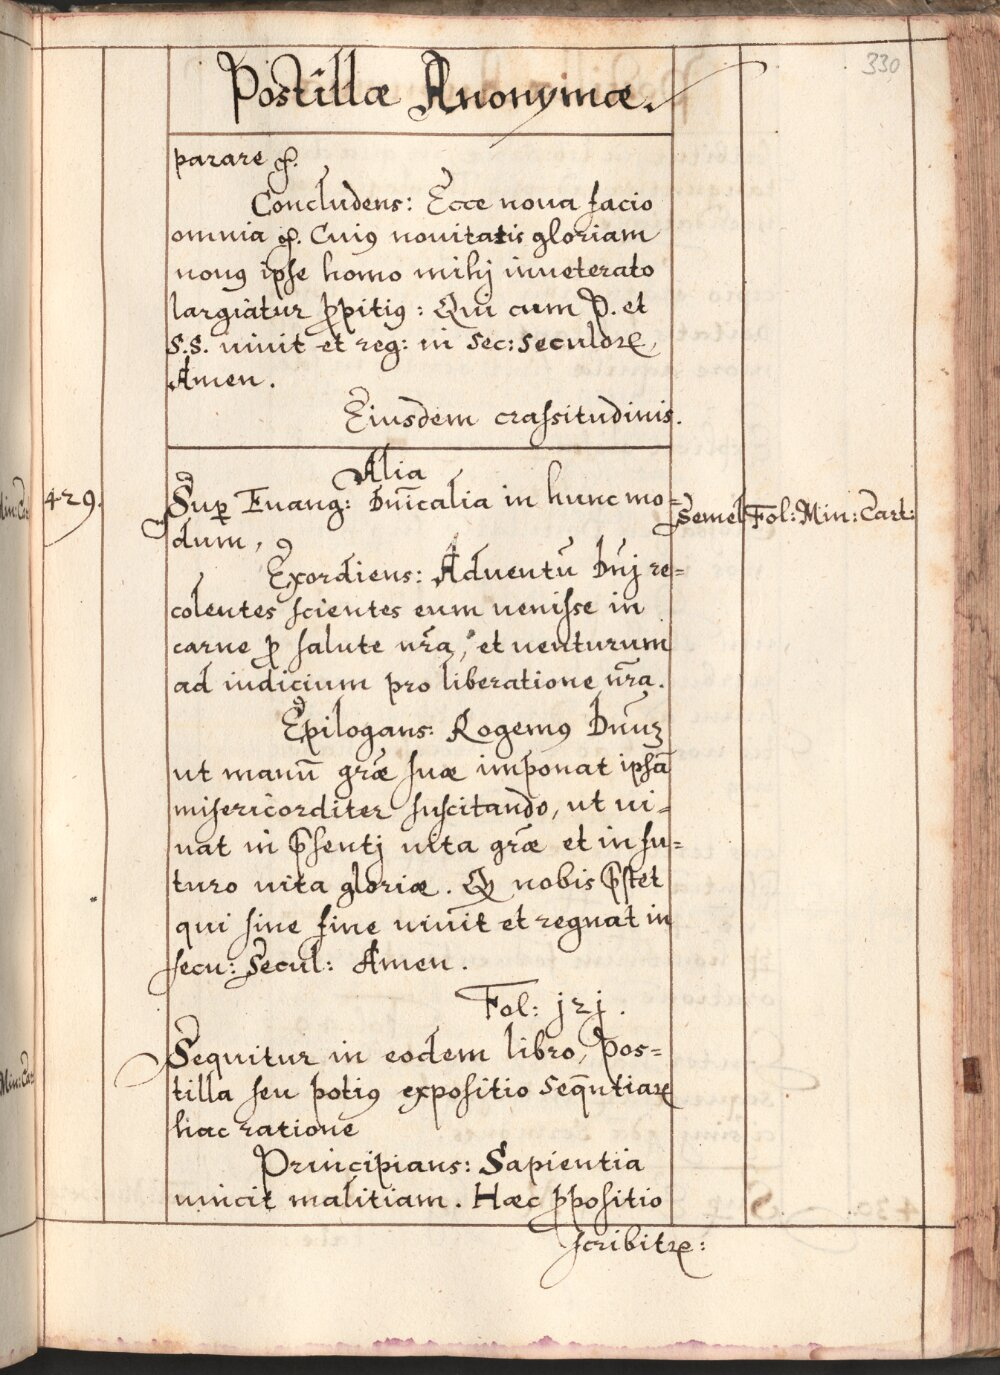 330
Postillæ Anonymæ.
parare &.
Concludens: Ecce noua facio
omnia &. Cuiꝰ nouitatis gloriam
nouꝰ ipse homo mihj inueterato
largiatur ꝓpitiꝰ: Qui cum P. et
S.S. uiuit et reg: in sec: seculoꝝ,
Amen.
Eiusdem crassitudinis.
Alia
429. Suꝑ Euang: Dn̄icalia in hunc mo= Semel Fol: Min: Cart:
dum,
Exordiens: Aduentū Dn̄j re=
colentes scientes eum uenisse in
carne ꝓ salute nr̄a, et uenturum
ad iudicium pro liberatione nr̄a.
Epilogans: Rogemꝰ Dn̄uꝫ
ut manū gr̄æ suæ imponat ipsā
misericorditer suscitando, ut ui=
uat in p̄sentj uita gr̄æ et in fu=
turo uita gloriæ. Qꝫ nobis p̄stet
qui sine fine uiuit et regnat in
secu: Secul: Amen.
Fol: jzj.
Sequitur in eodem libro, Pos=
tilla seu potiꝰ expositio Seqn̄tiaꝝ
hac ratione
Principians: Sapientia
uincit malitiam. Hæc ꝓpositio
scribitꝝ: